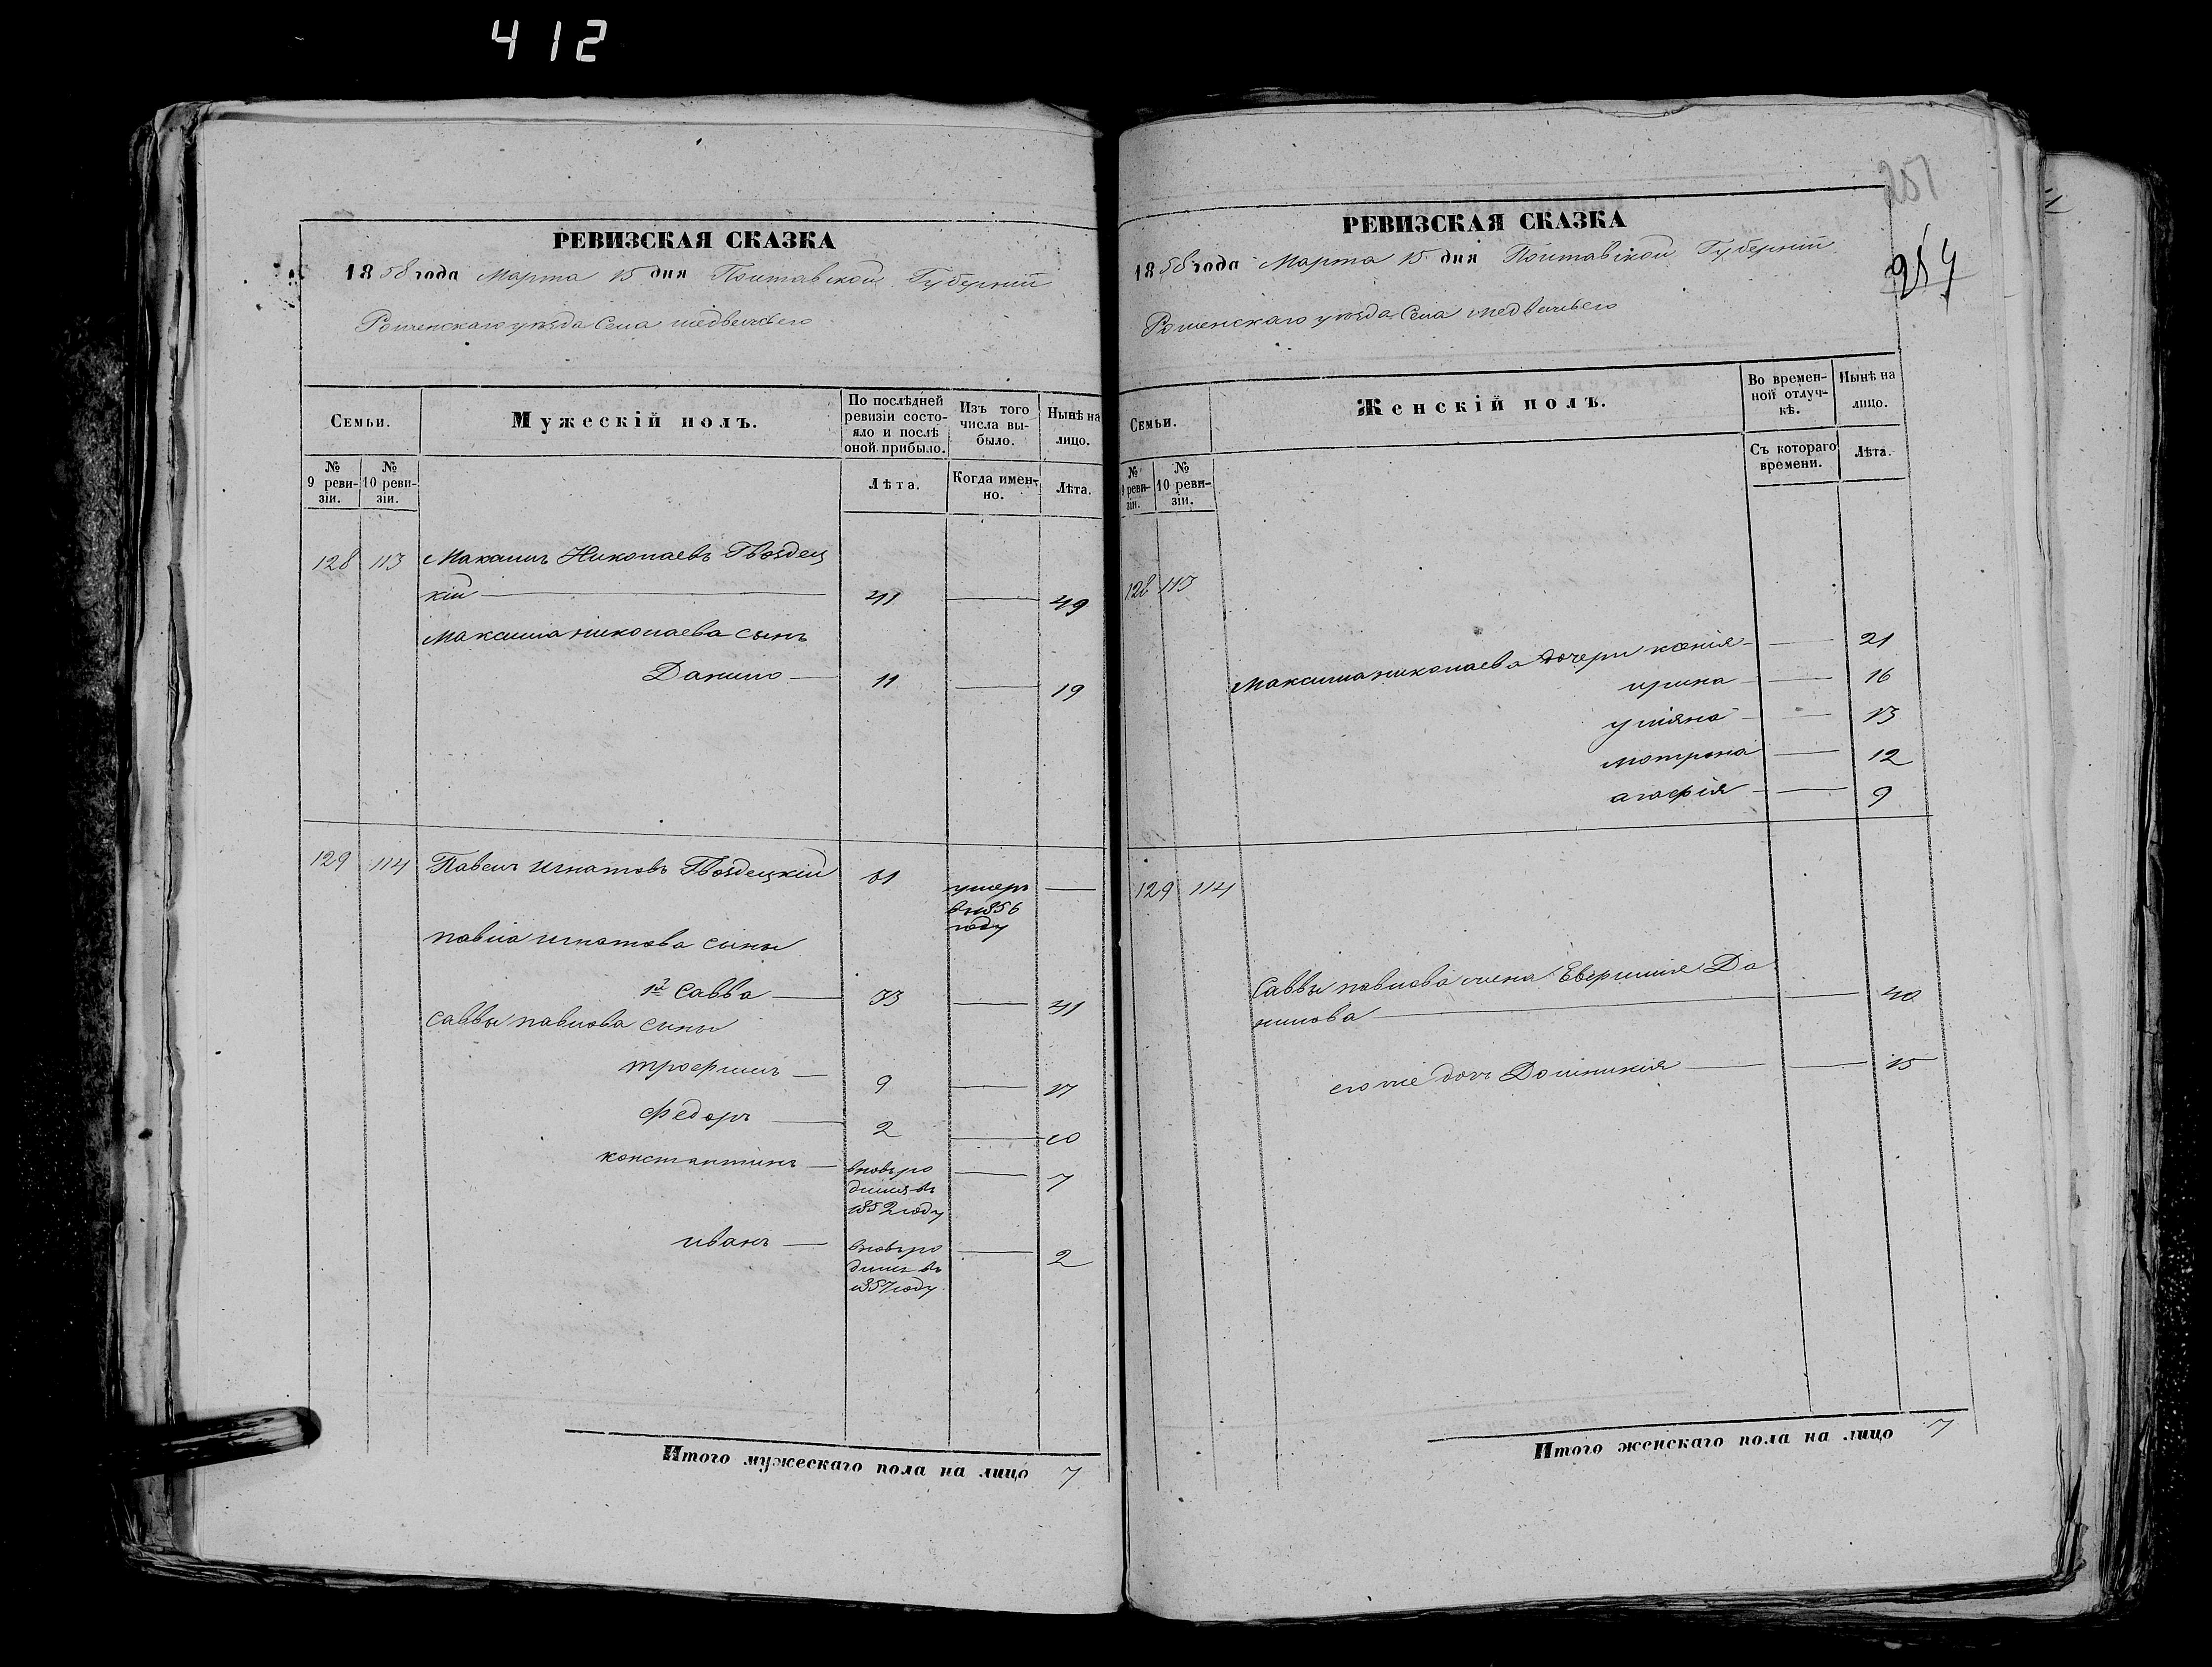 412
РЕВИЗСКАЯ СКАЗКА
1858 года Марта 15 дня Полтавской Губерніи
Роменскаго уѣзда Села медвежьего
Семьи.
Мужескій полъ.
По послѣдней ревизіи состояло и послѣ оной прибыло.
Изъ того числа выбыло.
Нынѣ на лицо.
№ 9 ревизіи.
№ 10 ревизіи.
Лѣта.
Когда именно.
Лѣта.
128 113 Максимъ Николаевъ Гвоздец
кій 41 49
Максима николаева сынъ
Данило 11 19
129 114 Павелъ игнатовъ Гвоздецкій 61 умеръ в 1856 году
павла игнатова сыны
1й Савва 33 41
саввы павлова сыны
трофимъ 9 17
федоръ 2 10
константинъ вновь ро
дился въ
1852 году 7
иванъ вновь ро
дилсь въ
1857 году 2
Итого мужескаго пола на лицо 7
251
254
РЕВИЗСКАЯ СКАЗКА
1858 года Марта 15 дня Полтавской Губерніи
Роменскаго уѣзда Села медвежьего
Семьи.
Женскій полъ.
Во временной отлучкѣ.
Нынѣ на лицо.
№ 9 ревизіи.
№ 10 ревизіи.
Съ котораго времени.
Лѣта.
128 113
Максима николаева дочери ксенія 21
ирина 16
уліяна 13
мотрона 12
агафія 9
129 114
Саввы павлова жена Евфимия Да
нилова 40
его же дочь Домникия 15
Итого женскаго пола на лицо 7